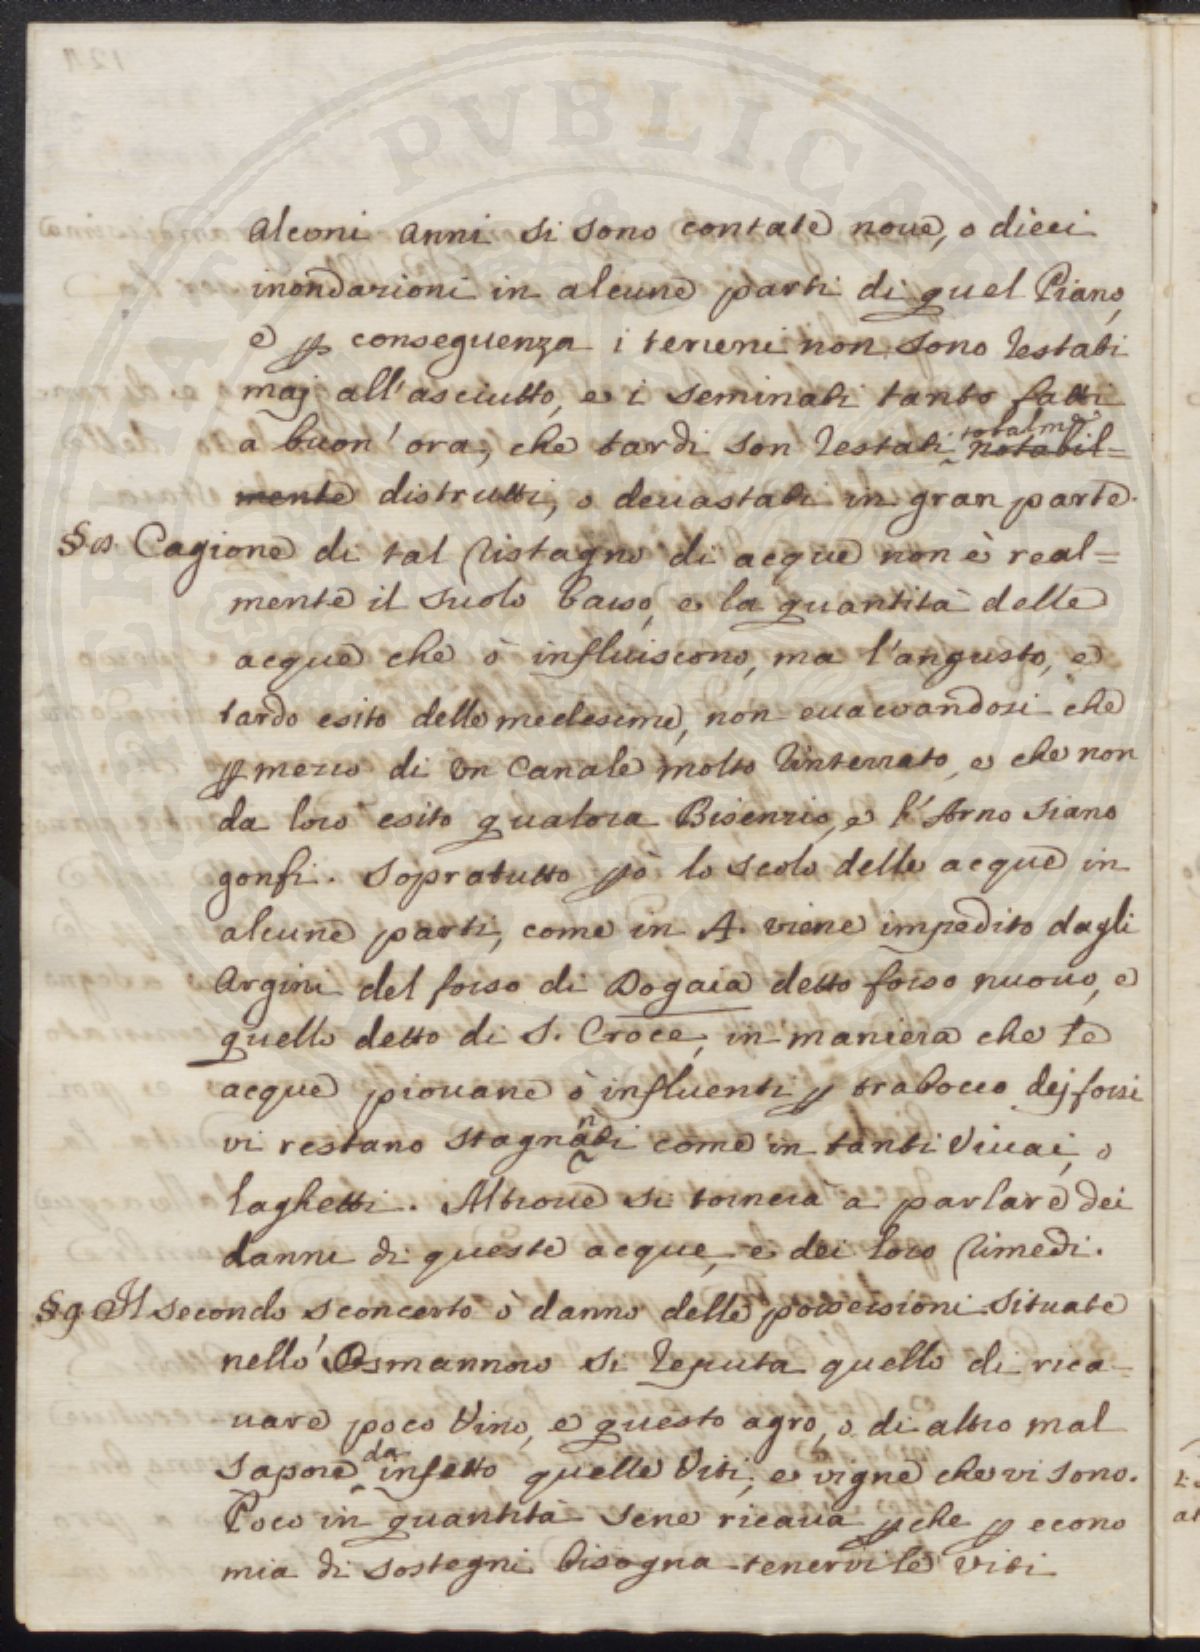 alconi anni si sono contate noue, o dieci
inondazioni in alcune parti di quel Piano,
e ꝑ conseguenza i terreni non sono restati
maj all'asciutto, e i seminati tanto fatti
a buon'ora, che tardi son restati totalm.te notabil=
mente distrutti, o deuastati in gran parte.
§ 8. Cagione di tal ristagno di acque non è real=
mente il suolo basso, e la quantità delle
acque che ò influiscono, ma l'angusto, e
tardo esito delle medesime, non euacuandosi che
ꝑ mezzo di un Canale molto rinterrato, e che non
da loro esito qualora Bisenzio, e l'Arno siano
gonfi. Sopratutto ꝑò lo scolo delle acque in
alcune parti, come in A. viene impedito dagli
Argini del fosso di Dogaia detto fosso nuouo, e
quello detto di S. Croce, in maniera che le
acque piouane ò influenti ꝑ trabocco dej fossi
vi restano stagnanti come in tanti Viuai, o
laghetti. Altroue si tornerà a parlare dei
danni di queste acque, e dei loro rimedi.
§ 9. Il secondo sconcerto ò danno delle possessioni situate
nell'Osmannoro si reputa quello di rica=
uare poco Vino, e questo agro, o di altro mal
sapore da infetto quelle Viti, e vigne che vi sono.
Poco in quantità sene ricaua ꝑche ꝑ econo
mia di sostegni bisogna tenervi le viti